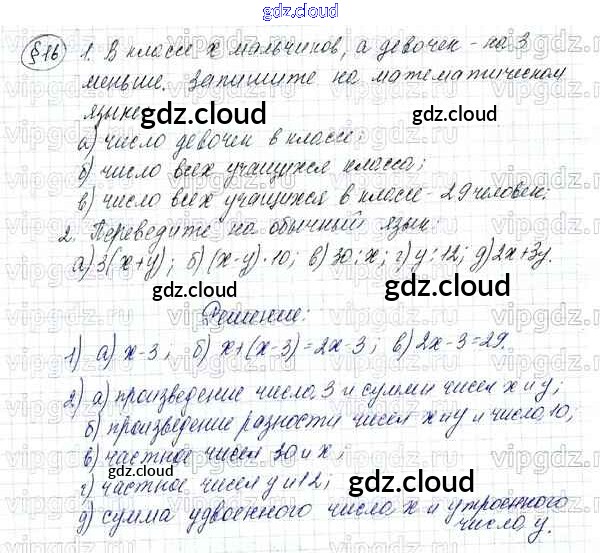 gdz.cloud
§16 1. В классе x мальчиков, а девочек - на 3
меньше. Запишите на математическом
языке
gdz.cloud gdz.cloud
а) число девочек в классе;
б) число всех учащихся класса;
в) число всех учащихся в классе - 29 человек;
2. Переведите на обычный язык:
а) 3(x+y); б) (x-y)·10; в) 30:x; г) y:12; д) 2x+3y.
gdz.cloud gdz.cloud
Решение:
1) а) x-3; б) x+(x-3)=2x-3; в) 2x-3=29.
2) а) произведение числа 3 и суммы чисел x и y;
б) произведение разности чисел x и y и числа 10;
в) частное чисел 30 и x;
gdz.cloud gdz.cloud
г) частное чисел y и 12;
д) сумма удвоенного числа x и утроенного
числа y.
gdz.cloud